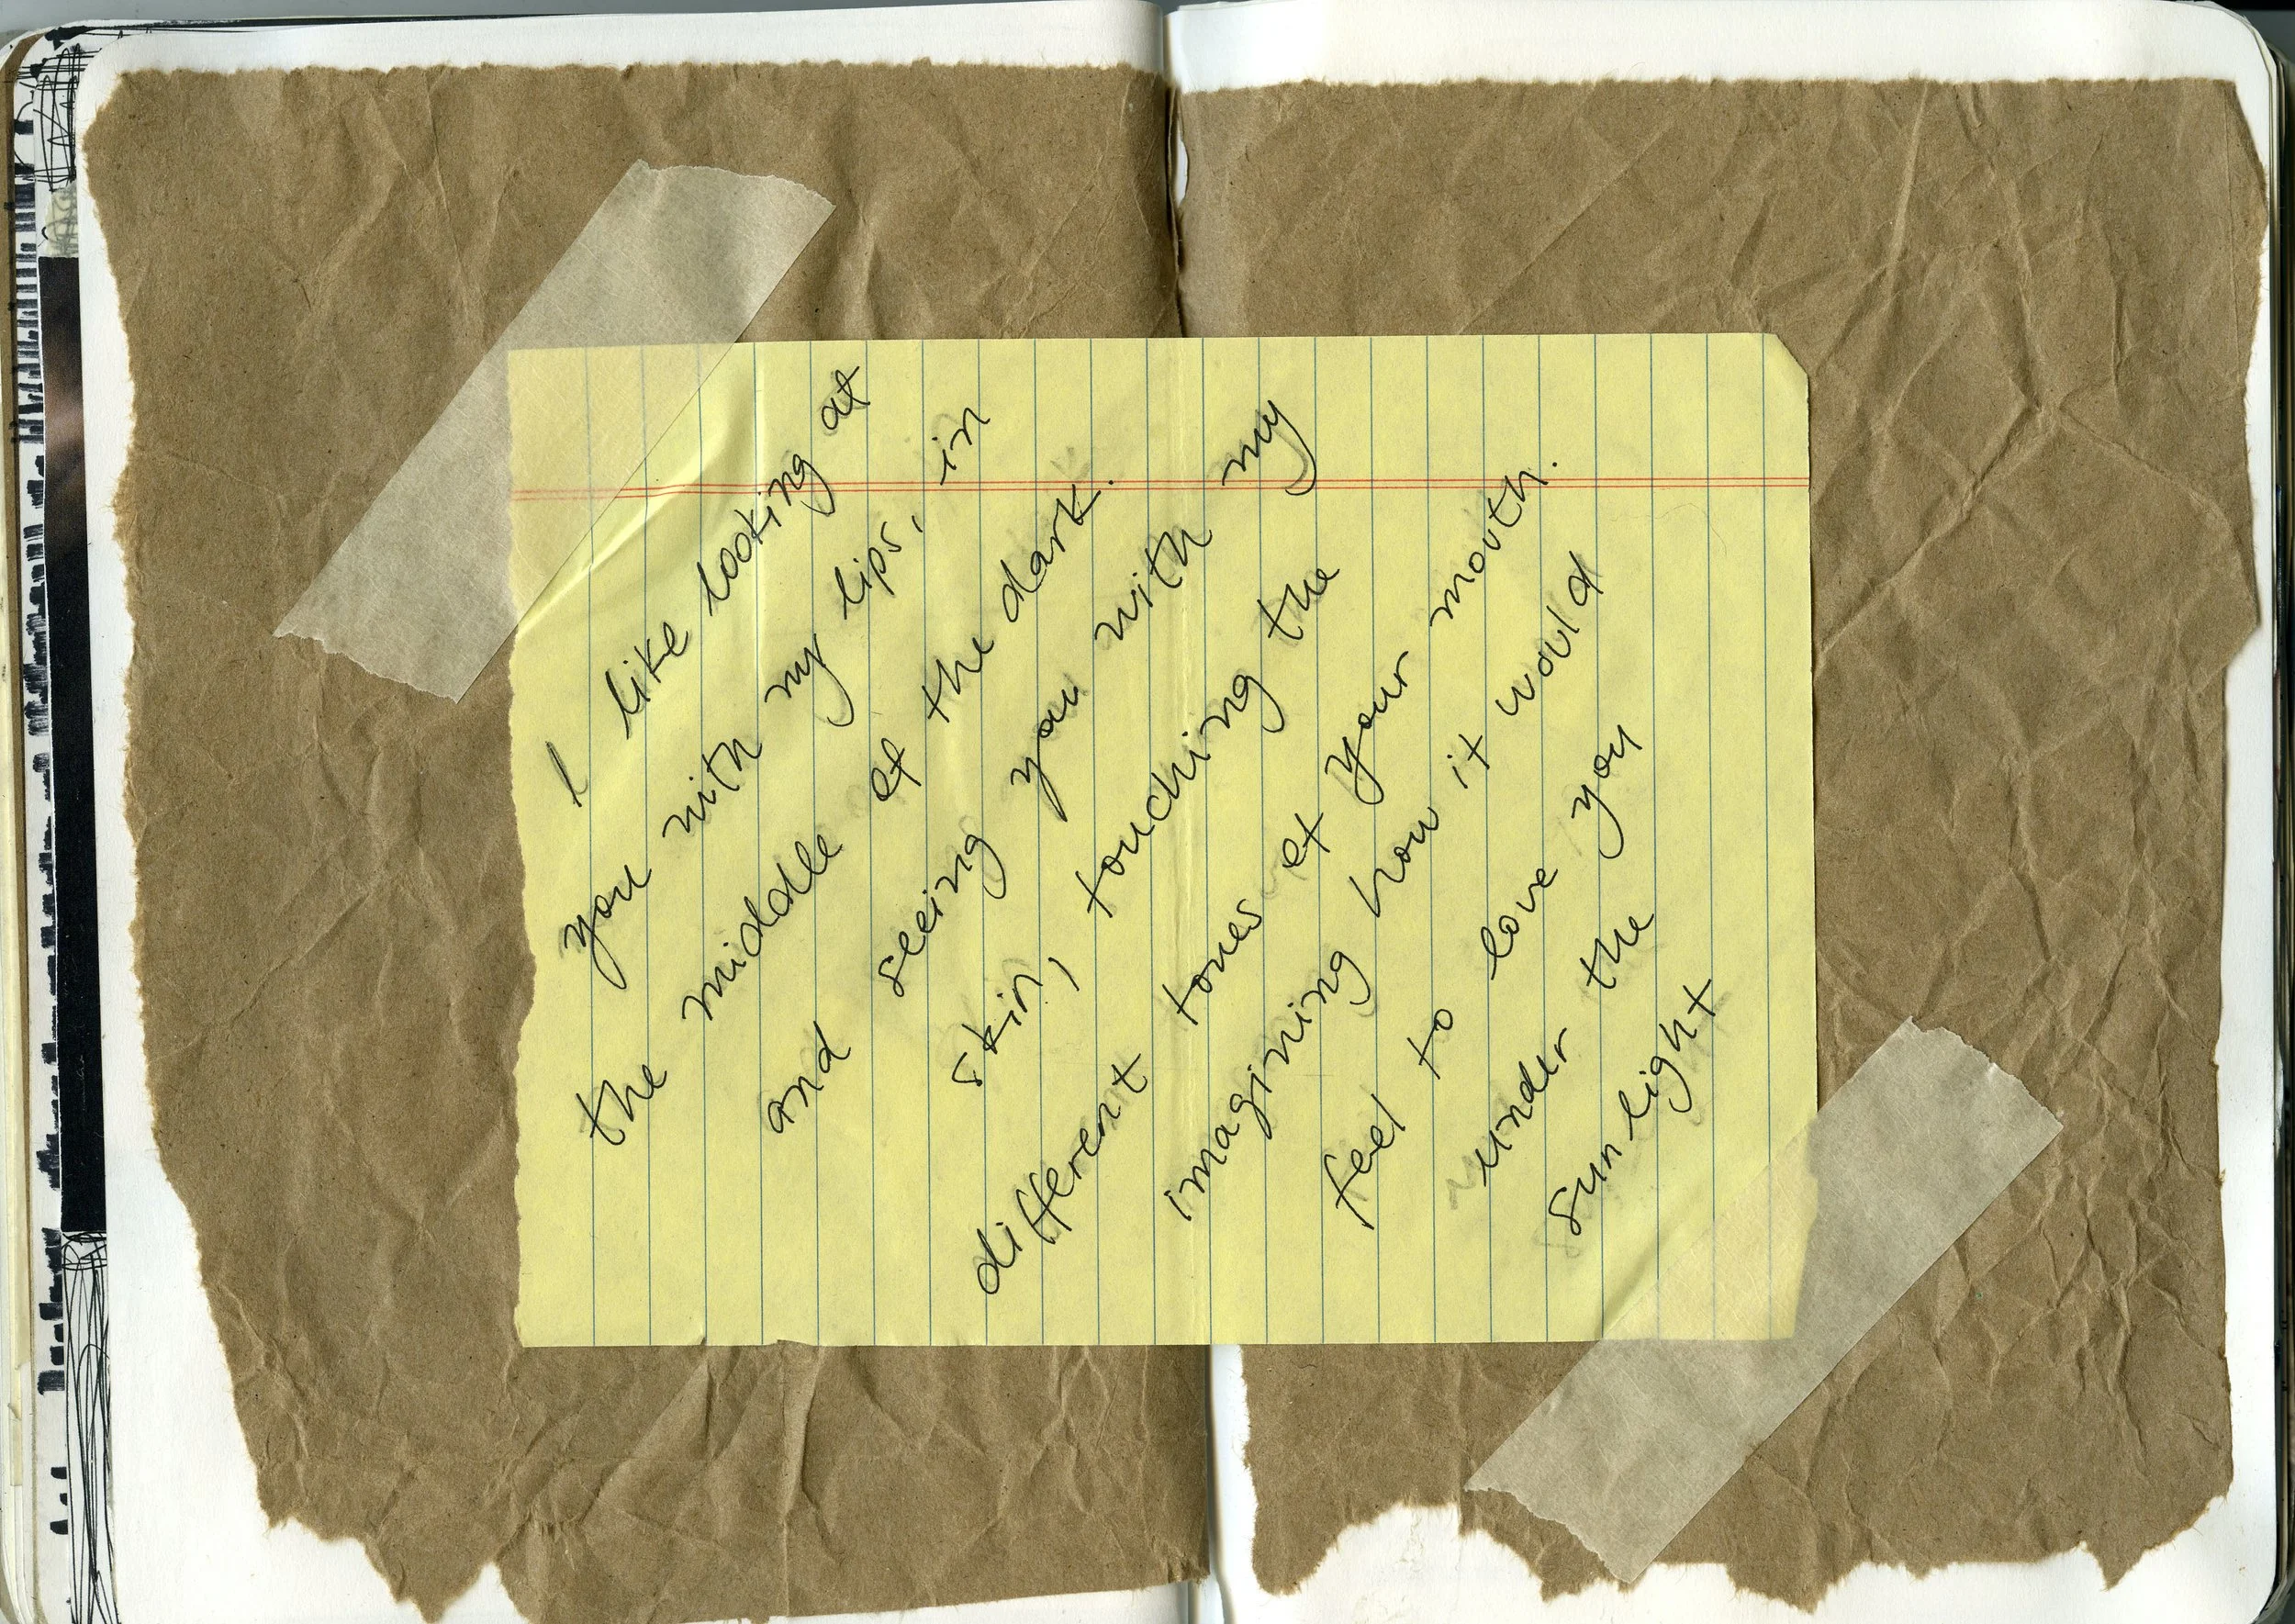 I like looking at
you with my lips, in
the middle of the dark.
and seeing you with my
skin, touching the
different tones of your mouth.
imagining how it would
feel to love you
under the
sunlight